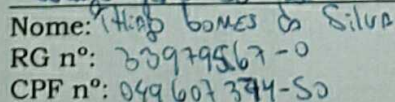 Nome: Thiago Gomes da Silva
RG nº: 33979567-0
CPF nº: 049607394-50